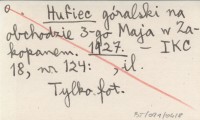 Hufiec góralski na
obchodzie 3-go Maja w Za-
kopanem. 1927. – IKC
18, nr 124: , il.
Tylko fot.